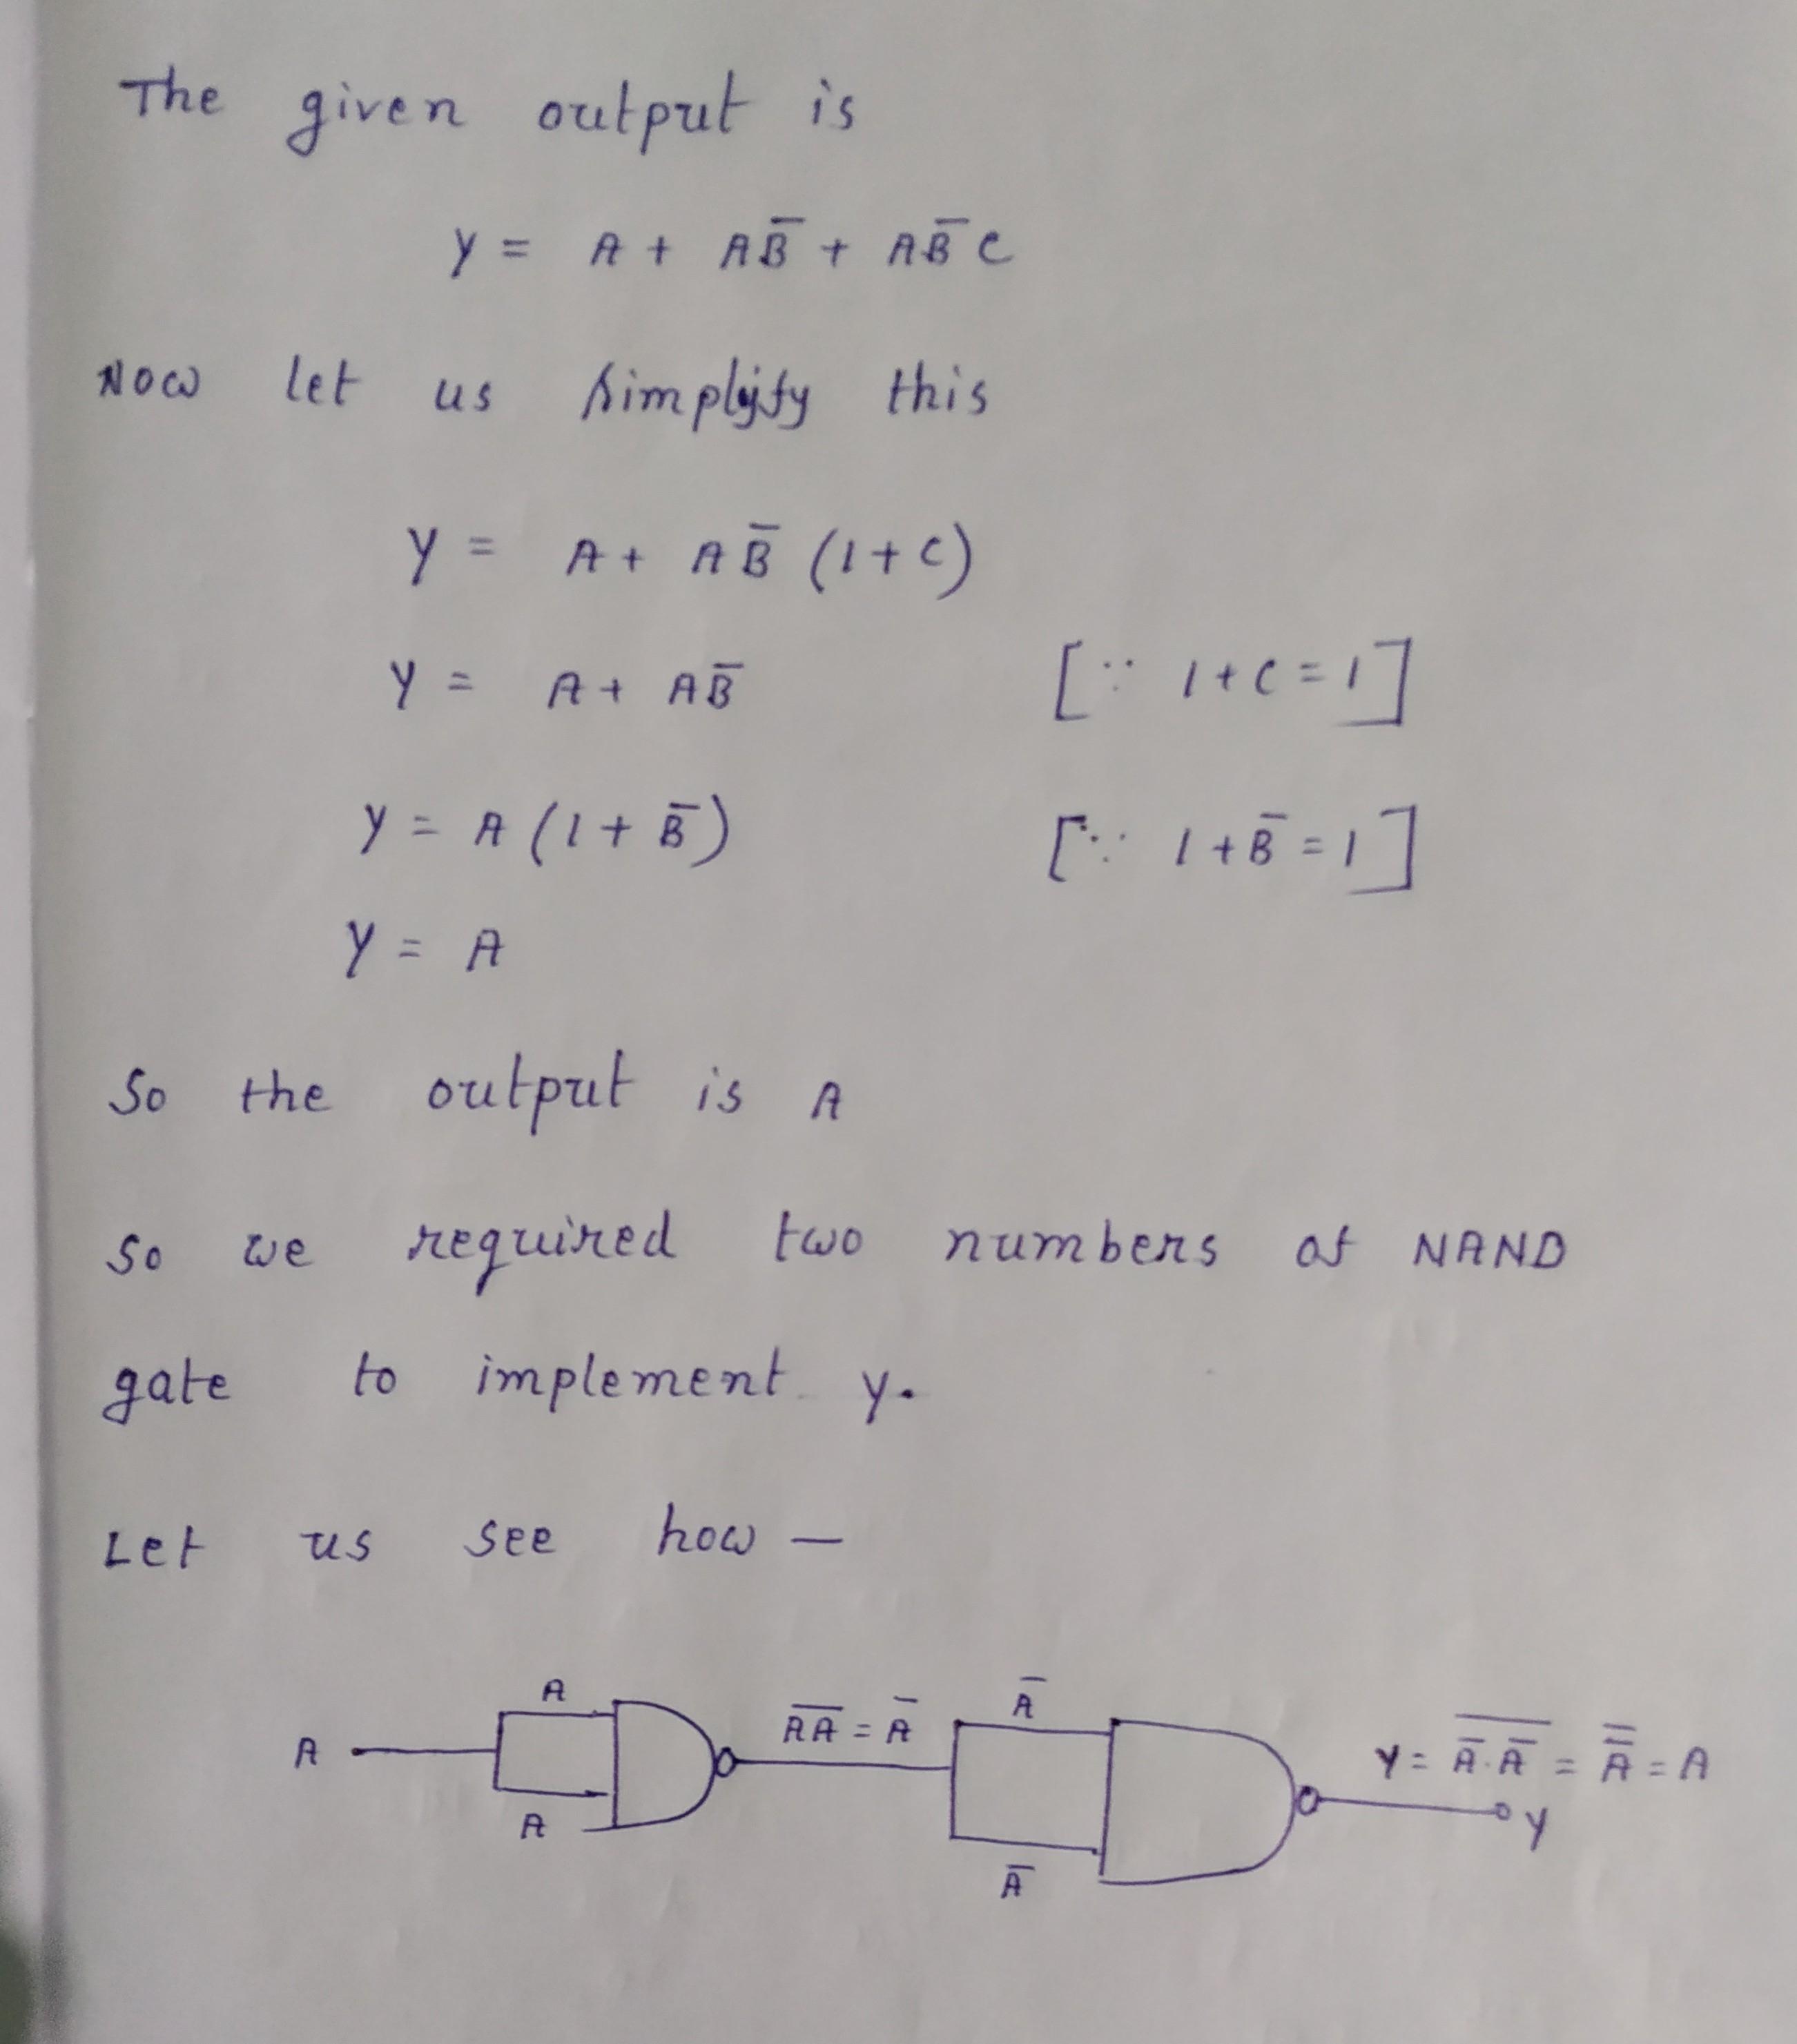 The given output is
y = A + AB̅ + AB̅C
Now let us simplify this
y = A + AB̅ (1+C)
y = A + AB̅ [∵ 1+C=1]
y = A (1+B̅) [∵ 1+B̅=1]
y = A
So the output is A
So we required two numbers of NAND
gate to implement y.
Let us see how —
A
A
A
A̅A̅ = A̅
A̅
A̅
Y = \overline{A̅.A̅} = \overline{A̅} = A
y